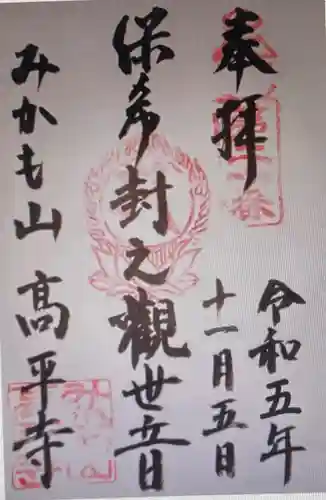 奉拝
令和五年
十一月五日
保希封之觀世音
みかも山 高平寺